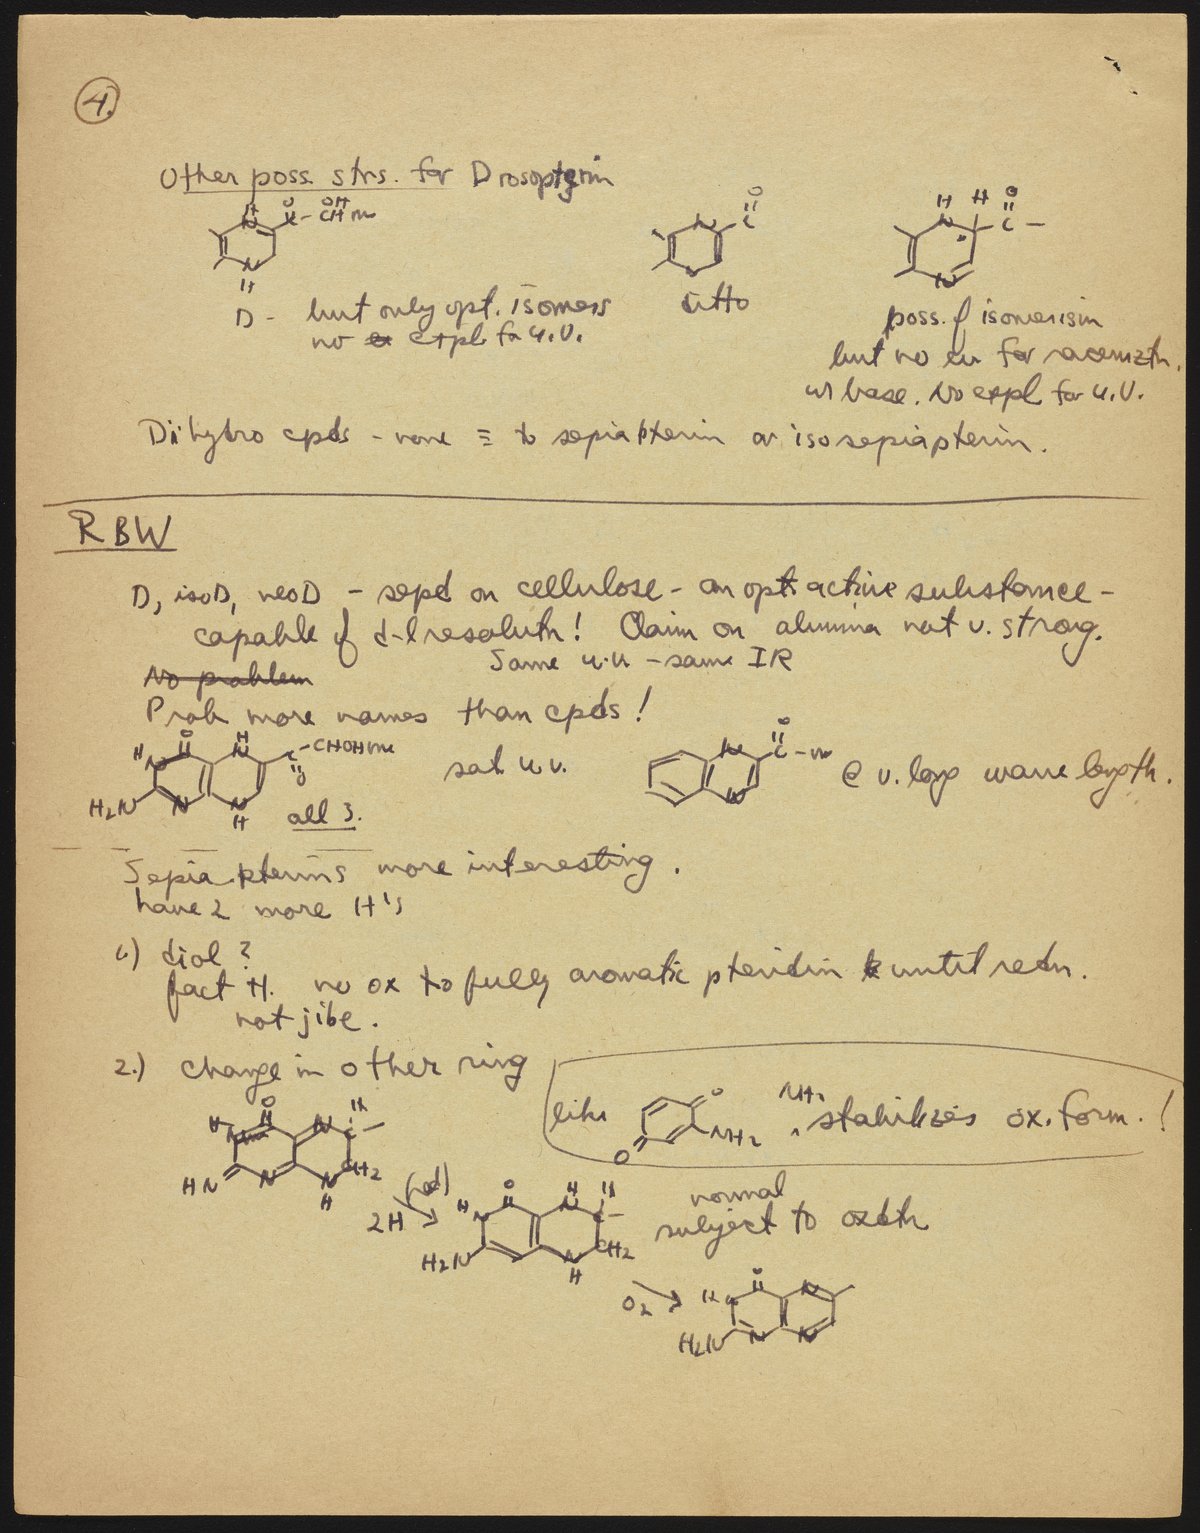 4.
Other poss. strs. for Drosopterin
H N O C - OH CH Me N H
N O C N
H N H O C - N
D - but only opt. isomers
no expl. for u.v.
ditto
poss. of isomerism
but no ev for racemztn.
w base. No expl for u.V.
Dihydro cpds - none ≡ to sepiapterin or isosepiapterin.
RBW
D, isoD, neoD - sepd on cellulose - an opt. active substance -
capable of d-l resolutn! Claim on alumina not v. strong.
Same u.v - same IR
No problem
Prob more names than cpds!
H N O H N C - CHOHMe O
H2N N N H all 3.
sat u.v.
N O C - N
@ v. long wave length.
Sepiapterins more interesting.
have 2 more H's
1.) diol?
fact H. no ox to fully aromatic pteridin until redn.
not jibe.
2.) change in other ring
like O NH2 O NH2 stabilizes ox. form. !
H N O N C -
HN N N H CH2
2H (red)
H N O H N C -
H2N N H CH2
normal
subject to oxdtn
O2
H N O N
H2N N N